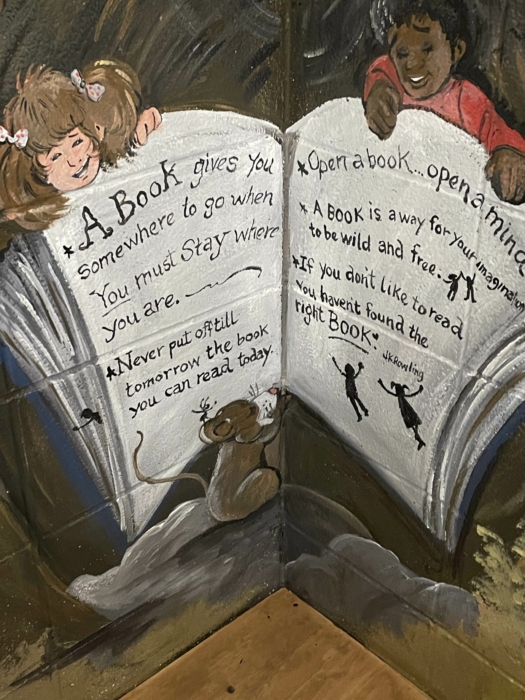 *A Book gives you
somewhere to go when
You must Stay where
you are.
*Never put off till
tomorrow the book
you can read today.
*Open a book...open a mind
* A BOOK is a way for your imagination
to be wild and free.
*If you don't like to read
You haven't found the
right BOOK.
JKRowling